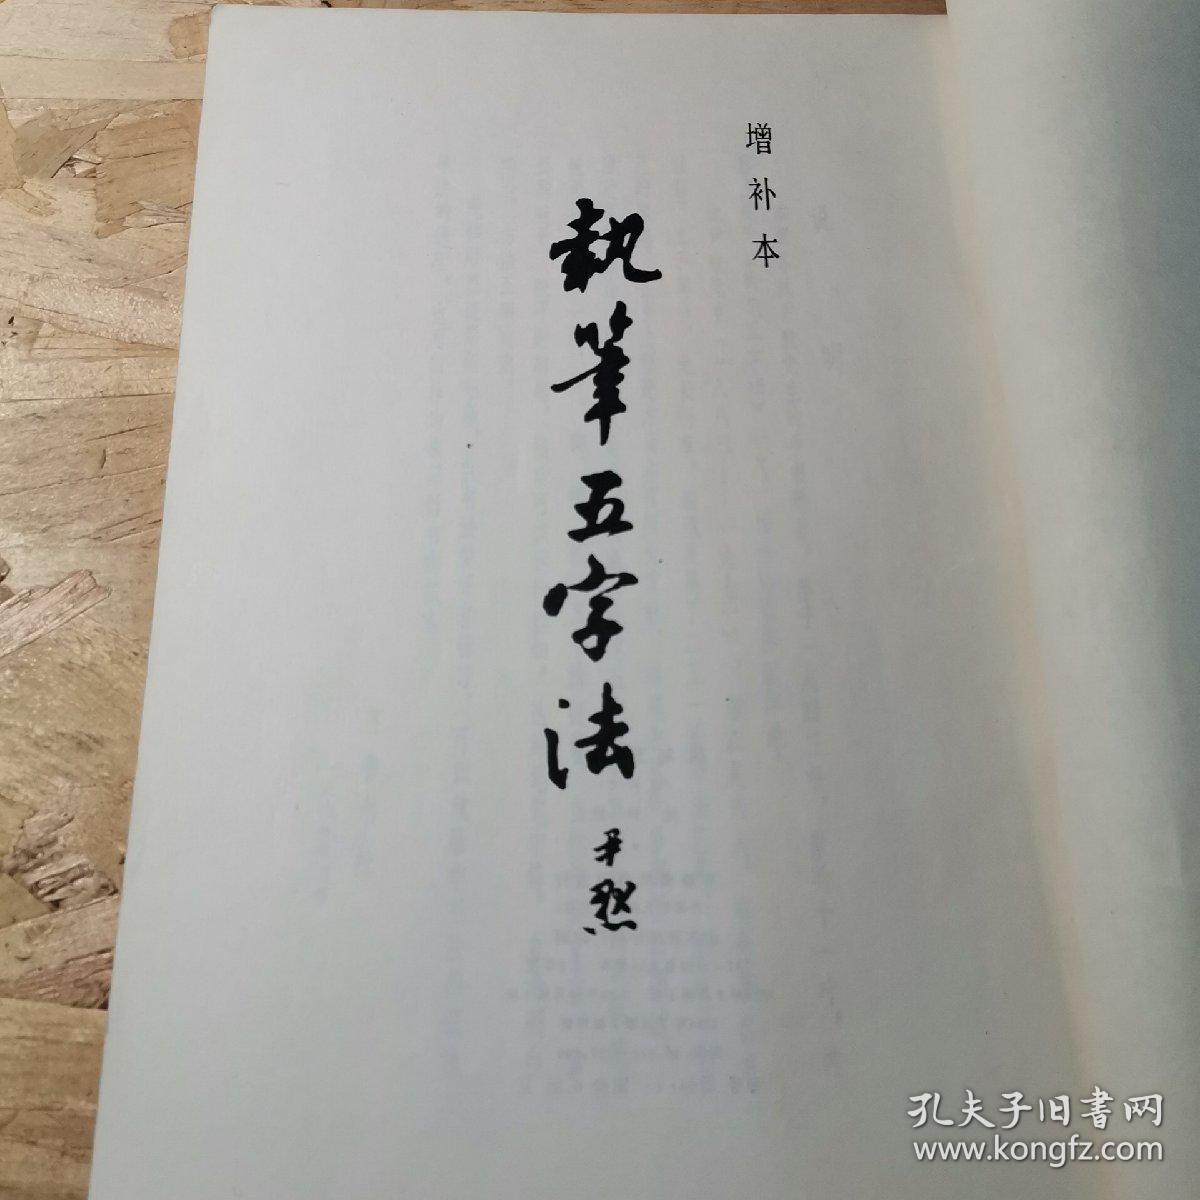 增补本
執筆五字法
尹默
孔夫子旧書网
www.kongfz.com